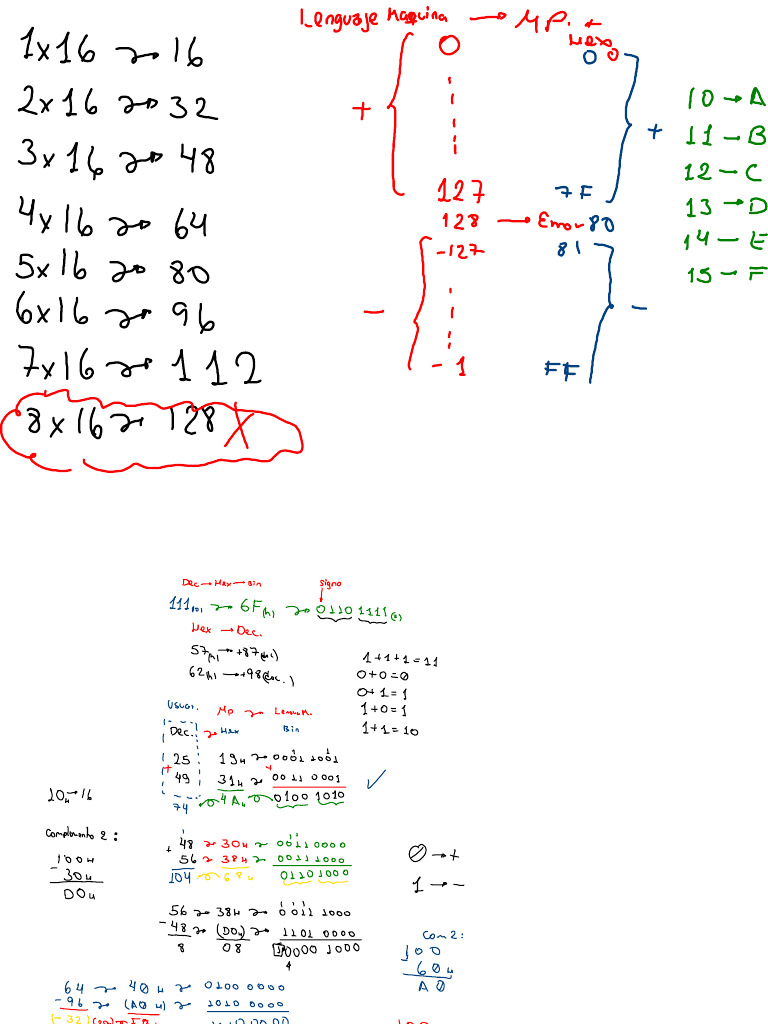 Lenguaje Maquina → MP. +
Hexo
1x16 → 16
2x16 → 32
3x16 → 48
4x16 → 64
5x16 → 80
6x16 → 96
7x16 → 112
8x16 → 128 X
+ 0 0 0 +
127 7F
128 → Error 80
-127 81
- -1 FF -
10 → A
11 → B
12 — C
13 → D
14 — E
15 — F
Dec → Hex → Bin signo
111(10) → 6F(h) → 0110 1111(2)
Hex → Dec.
57(h) → +87
62(h) → +98
1+1+1=11
0+0=0
0+1=1
1+0=1
1+1=10
Usuar. MP →
Dec. → Hex Bin
25 19H → 0001 1001
+ 49 31H → + 0011 0001
74 4AH 0100 1010
10H → 16
Complemento 2:
100H
- 30H
D0H
+ 48 → 30H → 0011 0000
56 → 38H → 0011 1000
104 68H 0110 1000
0 → +
1 → -
56 → 38H → 0011 1000
- 48 → (D0H) → 1101 0000
8 08 1 0000 1000
Com 2:
100
60H
A0
64 → 40H → 0100 0000
- 96 → (A0H) → 1010 0000
(-32)